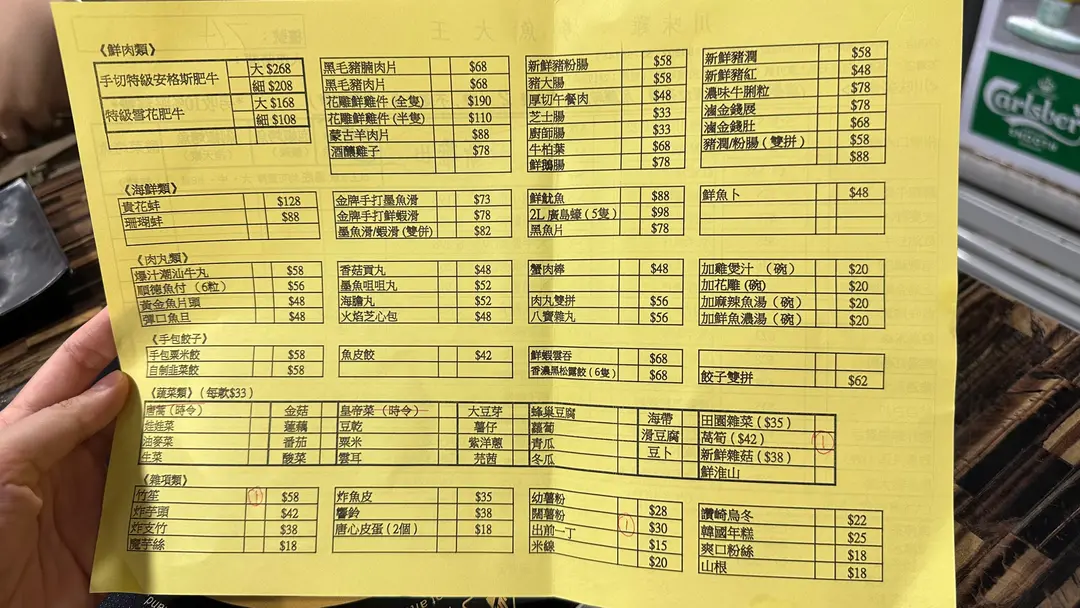 《鮮肉類》
手切特級安格斯肥牛 大 $268
細 $208
特級雪花肥牛 大 $168
細 $108
黑毛豬腩肉片 $68
黑毛豬肉片 $68
花雕鮮雞件 (全隻) $190
花雕鮮雞件 (半隻) $110
蒙古羊肉片 $88
酒釀雞子 $78
新鮮豬粉腸 $58
豬大腸 $58
厚切午餐肉 $48
芝士腸 $33
廚師腸 $33
牛柏葉 $68
鮮鵝腸 $78
新鮮豬潤 $58
新鮮豬紅 $48
濃味牛脷粒 $78
滷金錢𦟌 $78
滷金錢肚 $68
豬潤/粉腸 (雙拼) $58
$88
《海鮮類》
貴花蚌 $128
珊瑚蚌 $88
金牌手打墨魚滑 $73
金牌手打鮮蝦滑 $78
墨魚滑/蝦滑 (雙併) $82
鮮魷魚 $88
2L 廣島蠔 (5隻) $98
黑魚片 $78
鮮魚卜 $48
《肉丸類》
爆汁潮汕牛丸 $58
順德魚付 (6粒) $56
黃金魚片頭 $48
彈口魚旦 $48
香菇貢丸 $48
墨魚咀咀丸 $52
海膽丸 $52
火焰芝心包 $48
蟹肉棒 $48
肉丸雙拼 $56
八寶雜丸 $56
加雞煲汁 (碗) $20
加花雕 (碗) $20
加麻辣魚湯 (碗) $20
加鮮魚濃湯 (碗) $20
《手包餃子》
手包粟米餃 $58
自制韭菜餃 $58
魚皮餃 $42
鮮蝦雲吞 $68
香濃黑松露餃 (6隻) $68
餃子雙拼 $62
《蔬菜類》(每款$33)
唐蒿 (時令) 金菇 皇帝菜 (時令) 大豆芽 蜂巢豆腐 海帶 田園雜菜 ($35)
娃娃菜 蓮藕 豆乾 薯仔 蘿蔔 滑豆腐 萵筍 ($42) 1
油麥菜 番茄 粟米 紫洋蔥 青瓜 豆卜 新鮮雜菇 ($38)
生菜 酸菜 雲耳 芫茜 冬瓜 鮮淮山
《雜項類》
竹笙 1 $58
炸芋頭 $42
炸支竹 $38
魔芋絲 $18
炸魚皮 $35
響鈴 $38
唐心皮蛋 (2個) $18
幼薯粉 $28
闊薯粉 1 $30
出前一丁 $15
米線 $20
讚崎烏冬 $22
韓國年糕 $25
爽口粉絲 $18
山根 $18
Carlsberg